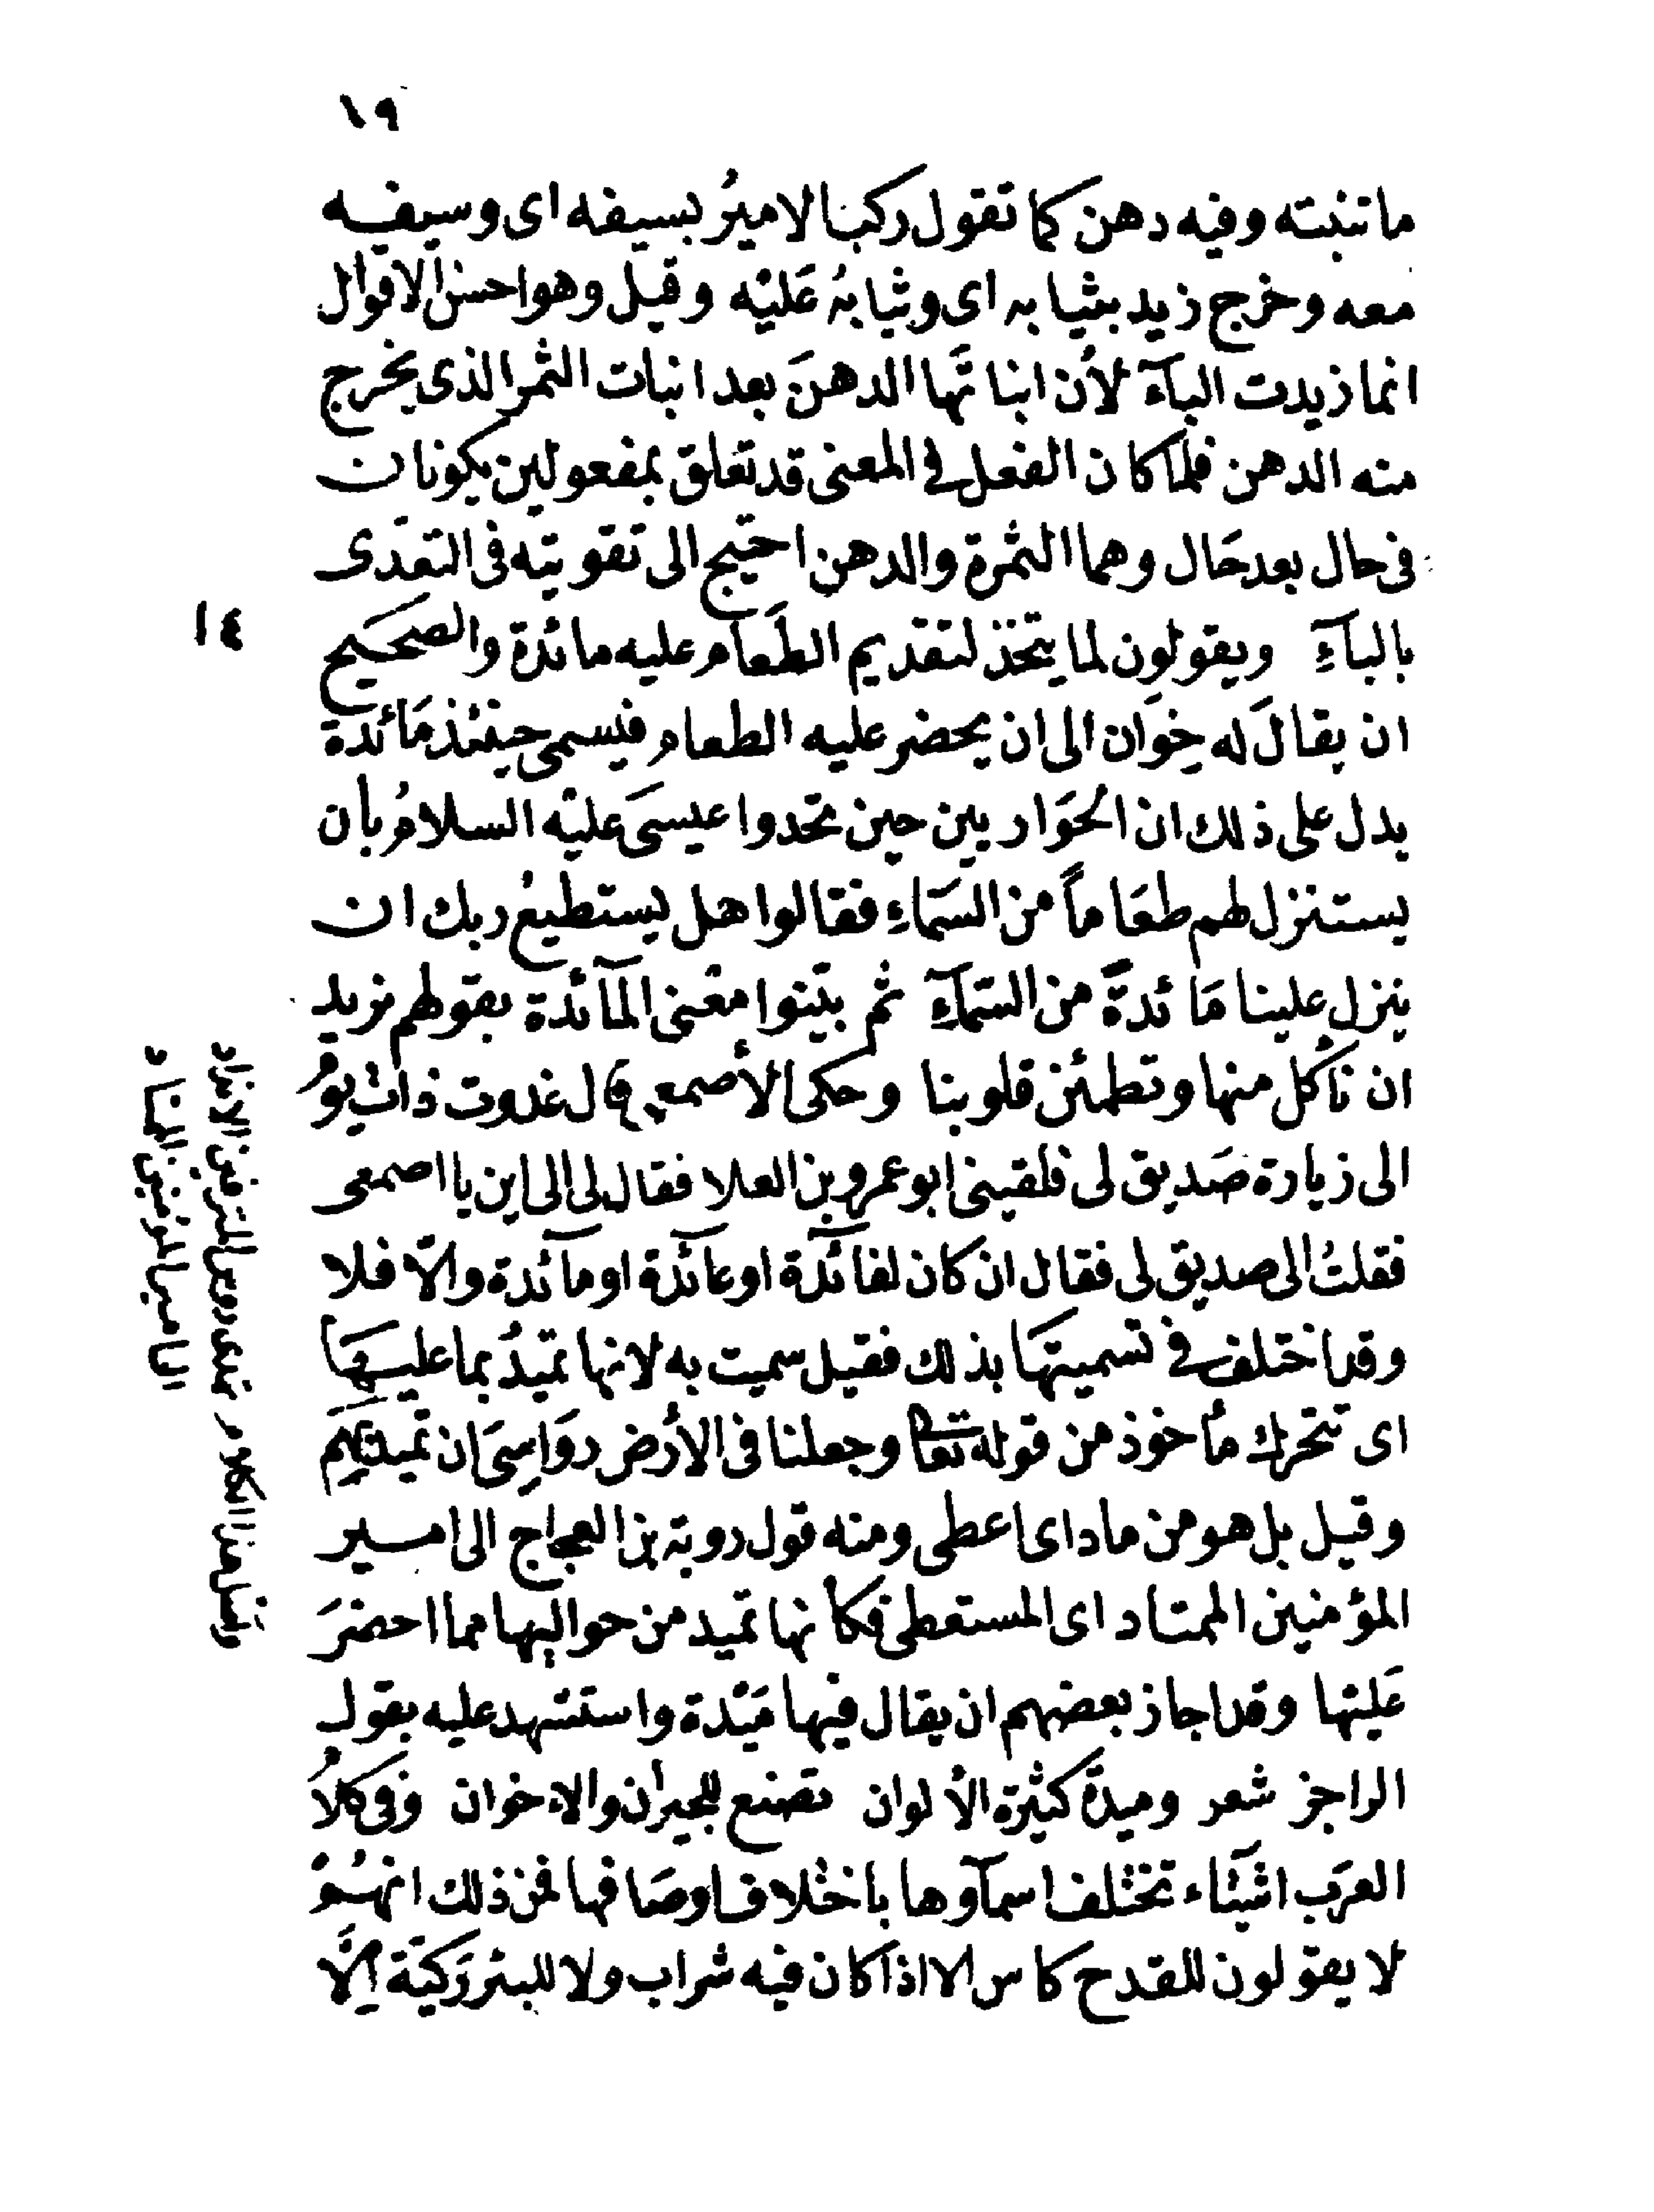 ١٩
ما تنبته وفيه دهن كما تقول ركب الاميرُ بسيفه اى وسيفه
معه وخرج زيد بثيابه اى وثيابهُ عَليْه وقيل وهو احسن الاقوال
انما زيدت البآءَ لأن انباتَها الدهنَ بعد انبات الثمر الذى يخرج
منه الدهن فلما كان الفعل فى المعنى قد تعلق بمفعولين يكونان
فى حال بعد حَال وهما الثمرة والدهن احتيج الى تقويته فى التعدى
بالبآءِ ويقولون لما يتخذ لتقديم الطَعَام عليه مائدة والصحَيح
١٤
ان يقالَ له خِوَان الى ان يحضر عليه الطعام فيسمى حينئذ مَائدة
يدل على ذلك ان الحَوَاريين حين تحدوا عيسَى عليْه السلامُ بأن
يستنزل لهم طعَاماً من السَمَاءِ فقالوا هل يستطيعُ ربك ان
ينزل علينا مَائدةً من السَمآءِ ثم بيّنوا معْنى المآئدة بقولهم نريد
ان نأكل منها وتطمئن قلوبنا وحكى الأصمعى قال غدوت ذات يومُ
الى زيارة صَديق لى فلقينى ابو عمرو بن العلا فقال لى الى اين يا اصمعى
فقلتُ الى صديق لى فقال ان كان لفآئدة او عآئدة او مآئدة والّا فلا
وقد اختلف فى تسميتهَا بذلك فقيل سميت به لانها تميدُ بما عليهَا
اى تتحرك مأخوذ من قوله تعالى وجعلنا فى الأرض روَاسِىَ ان تميد بهِم
وقيل بل هو من ماد اى اعطى ومنه قول روبة بن العجاج الى امير
المؤمنين الممتاد اى المستعطى فكأنها تميد من حواليها مما احضرَ
عَليْها وقد اجاز بعضهم ان يقال فيها مَيْدة واستشهد عليه بقول
الراجز شعر وميدةً كثيرة الألوان تصنع للجيران والاخوان وفى كلامُ
العرَب اشيَاء تختلف اسمآوها باختلاف اوصَافها فمن ذلك انهُمْ
لا يقولون للقدح كاس الا اذا كان فيه شراب ولا للبئر رَكيّة إلّا
الى امير المومنين الممتاد